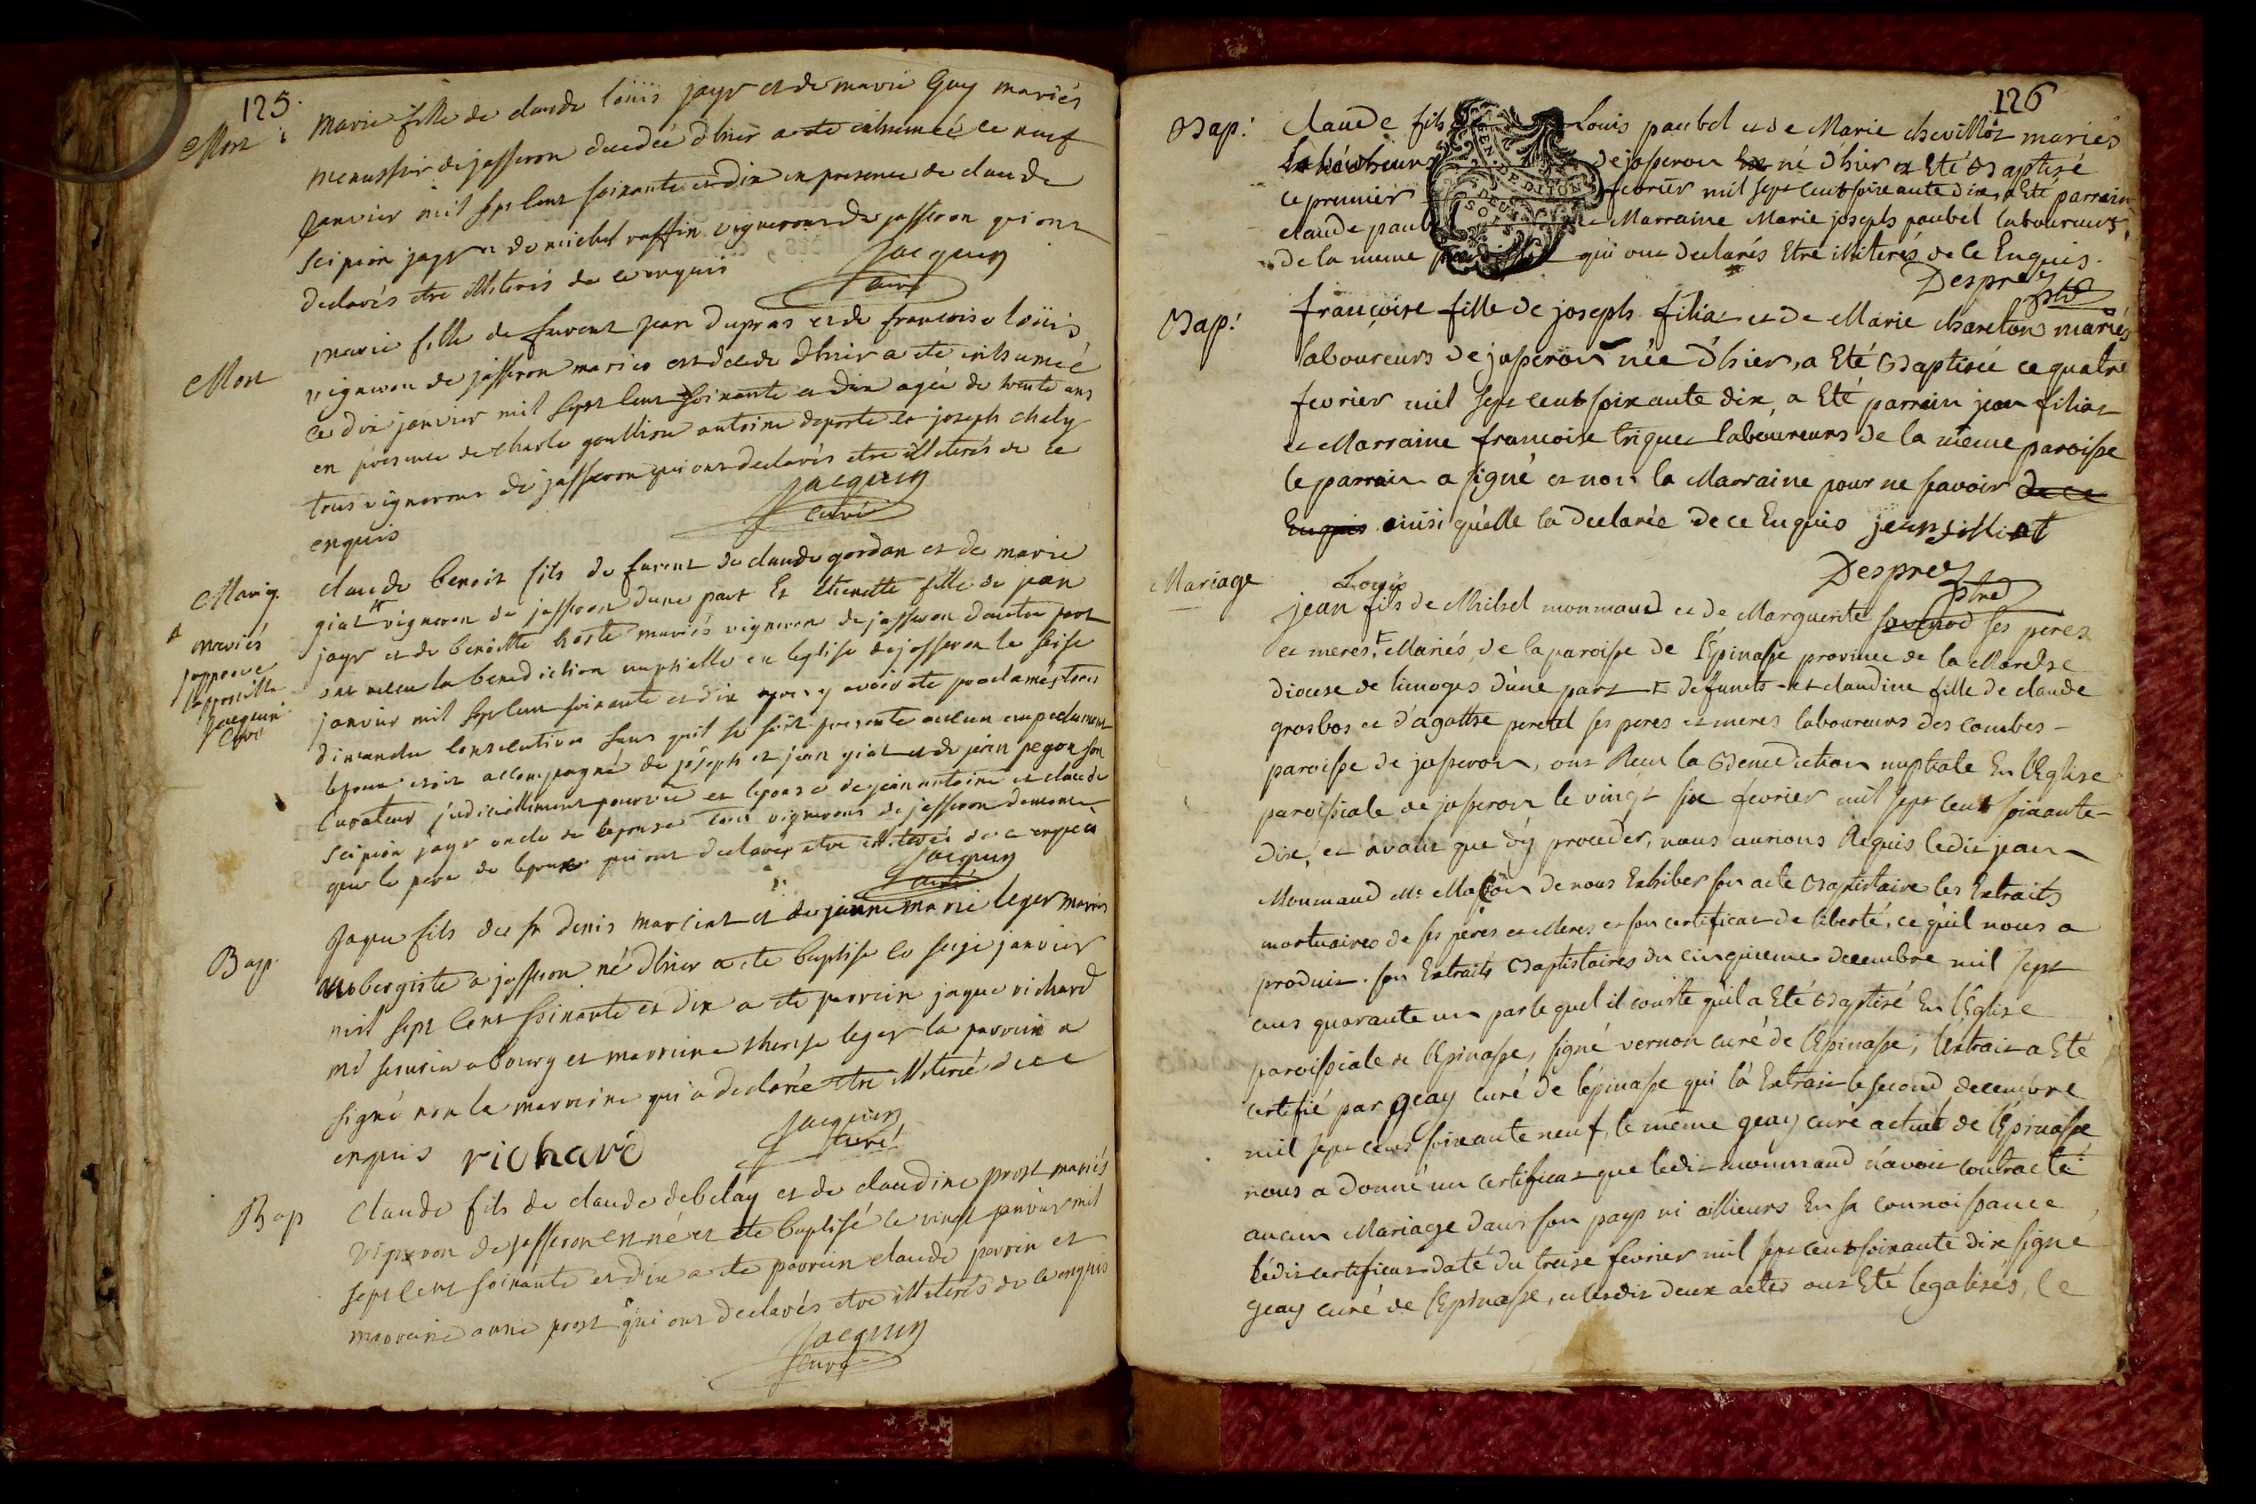 125.
Mort : marie fille de claude loüis jayr et de marie Guy mariés
menussier de jasseron decedée d'hier a ete inhumée ce neuf
janvier mil sept cent soixante et dix en presence de claude
scipion jayr et de michel raffin vignerons de jasseron qui ont
declarés etre illiterés de ce enquis jacquin
curé
Mort marie fille de furent jean dupras et de francoise loüis
vigneron de jasseron mariés est decedé d'hier a ete inhumée
ce dix janvier mil sept cent soixante et dix agée de trente ans
en presence de charle goullion antoine deporte et joseph chely
tous vignerons de jasseron qui ont declarés etre illiterés de ce
enquis jacquin
curé
Mariag. claude benoit fils de furent de claude gordan et de marie
giat # vigneron de jasseron dune part Et thenette fille de jean
jayr et de benoitte hoste mariés vigneron de jasseron dautre part
# mariés
japprouve
lapostille
jacquin
curé
ont recu la benediction nuptialle en leglise de jasseron le seise
janvier mil sept cent soixante et dix apres y avoir ete proclamés trois
dimanche consecutives sans quil se soit presenté aucun empechement
lepoux etoit accompagné de joseph et jean giat et de jean pegon son
curateur judiciellement pourvu et lepouse de jean antoine et claude
scipion jayr oncle de lepouse tous vignerons de jasseron
que le pere de lepouse qui ont declarés etre illiterés de ce enquis
jacquin
curé
Bap. jaque fils de sr denis marcint et de jeanne marie leger mariés
aubergiste a jasseron né d'hier a ete baptise ce seize janvier
mil sept cent soixante et dix a ete parrein jaque richard
md a bourg et marreine therese leger le parrein a
signé non la marreine qui a declarée etre illiterée de ce
enquis richard jacquin
curé
Bap claude fils de claude debelay et de claudine prost mariés
vigneron de jasseron est né et ete baptisé ce vingt janvier mil
sept cent soixante et dix a ete parrein claude perrin et
marreine anne prost qui ont declarés etre illiterés de ce enquis
jacquin
curé
126
Bap: claude fils Louis paubel et de Marie chevillot mariés
de jasseron né d'hier a Eté Baptisé
ce premier fevrier mil sept cent soixante dix, a Eté parrain
claude paub Marraine Marie joseph paubel laboureurs
de la meme qui ont declarés Etre illiterés de ce Enquis.
GEN. DE DIJON
DEUX SOLS
Despres
ptre
Bap: françoise fille de joseph filiat et de Marie charetons mariés
laboureurs de jasseron née d'hier, a Eté Baptisée ce quatre
fevrier mil sept cent soixante dix, a Eté parrain jean filiat
et Marraine francoise triquet laboureurs de la même paroisse
le parrain a signé et non la Marraine pour ne savoir de ce
Enquis ainsi qu'elle la declarée de ce Enquis jean filliat
Despres
ptre
Mariage Louis
jean fils de Michel monmaud et de Marguerite ses peres
et meres, # Mariés, de la paroisse de l'Epinasse province de la Marche
diocese de limoges d'une part # defunts - et claudine fille de claude
grosbos et d'agathe peretel ses peres et meres laboureurs des combes -
paroisse de jasseron, ont Recu la Benediction nuptiale En l'Eglise
paroissiale de jasseron le vingt six fevrier mil sept cent soixante
dix, et avant que d'y proceder, nous aurions Requis ledit jean
Monmaud Me Maçon de nous Exhiber son acte Baptistaire les Extraits
mortuaires de ses peres et Meres et son certificat de liberté, ce qu'il nous a
produit. son Extraits Baptistaires du cinquieme decembre mil sept
cens quarante un par lequel il conste qu'il a Eté Baptisé En l'Eglise
paroissiale de l'Epinasse, signé vernon curé de l'Epinasse; l'Extrait a Eté
certifié par geay curé de l'epinasse qui l'a Extrait le second decembre
mil sept cens soixante neuf, le même geay curé actuel de l'Epinasse
nous a donné un certificat que ledit monmaud n'avoit contracté
aucun Mariage dans son pays ni aillieurs En sa connoissance
ledit certificat daté du treise fevrier mil sept cent soixante dix signé
geay curé de l'Epinasse, et lesdits deux actes ont Eté legalisés, le